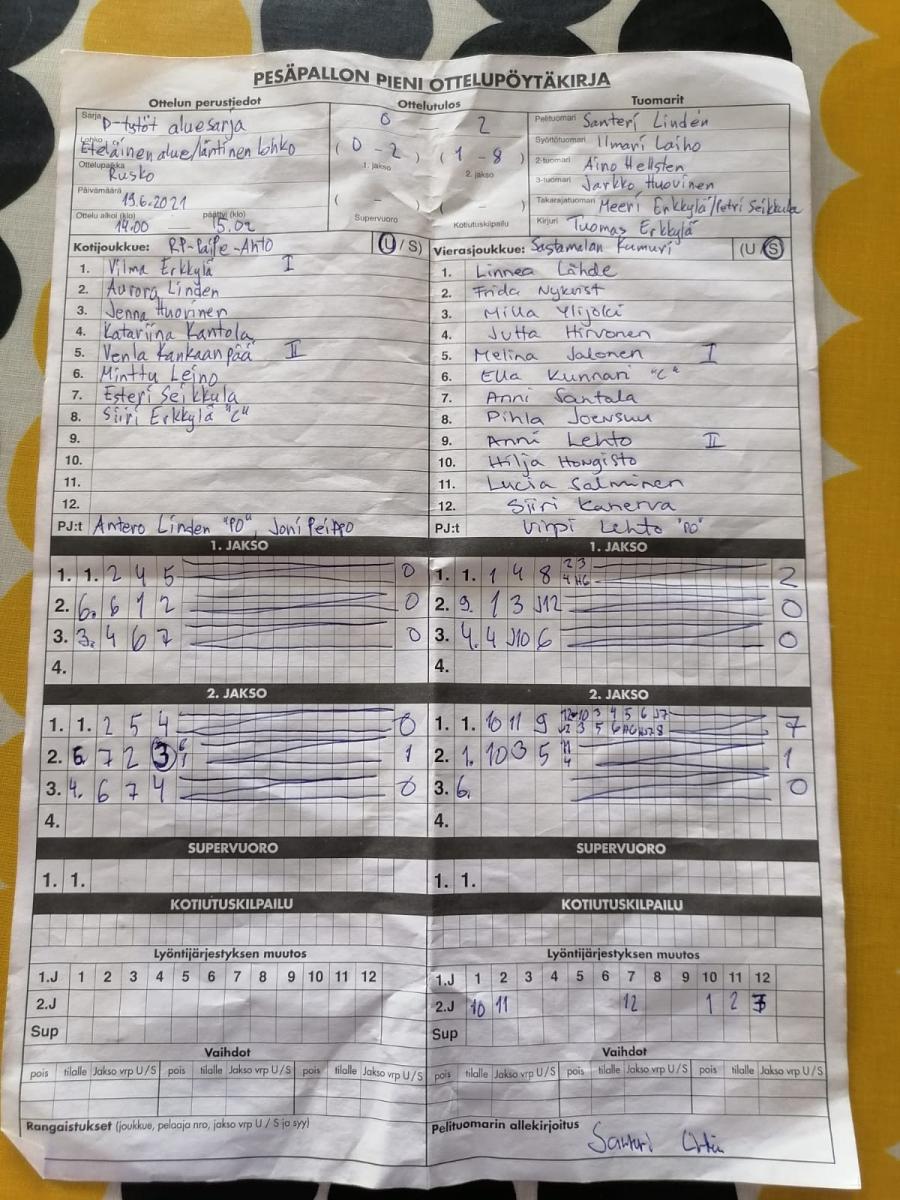 PESÄPALLON PIENI OTTELUPÖYTÄKIRJA
Ottelun perustiedot Ottelutulos Tuomarit
Sarja D-tytöt aluesarja 0 - 2 Pelituomari Santeri Lindén
Lohko Eteläinen alue/läntinen lohko (0 - 2) (1 - 8) Syöttötuomari Ilmari Laiho
Ottelupaikka Rusko 1. jakso 2. jakso 2-tuomari Aino Hellsten
3-tuomari Jarkko Huovinen
Päivämäärä 19.6.2021 ( - ) ( - ) Takarajatuomari Meeri Erkkylä/Petri Seikkula
Ottelu alkoi (klo) 14.00 — päättyi (klo) 15.02 Supervuoro Kotiutuskilpailu Kirjuri Tuomas Erkkylä
Kotijoukkue: RP-Laipe-Ahto (U / S) Vierasjoukkue: Sastamalan Kumuri (U / S)
1. Vilma Erkkylä I 1. Linnea Lähde
2. Aurora Linden 2. Frida Nykvist
3. Jenna Huovinen 3. Milla Ylijoki
4. Katariina Kantola 4. Jutta Hirvonen
5. Venla Kankaanpää II 5. Melina Jalonen I
6. Minttu Leino 6. Ella Kunnari "C"
7. Esteri Seikkula 7. Anni Santala
8. Siiri Erkkylä "C" 8. Pihla Joensuu
9. 9. Anni Lehto II
10. 10. Hilja Hongisto
11. 11. Lucia Salminen
12. 12. Siiri Kanerva
PJ:t Antero Linden "PO", Joni Peippo PJ:t Virpi Lehto "PO"
1. JAKSO 1. JAKSO
1. 1. 2 4 5 0 1. 1. 1 4 8 2 3 4 H6 2
2. 6. 6 1 2 0 2. 9. 1 3 J12 0
3. 3. 4 6 7 0 3. 4. 4 J10 6 0
4. 4.
2. JAKSO 2. JAKSO
1. 1. 2 5 4 0 1. 1. 10 11 9 7
2. 6. 7 2 3 1 2. 1. 10 3 5 11 4 1
3. 4. 6 7 4 0 3. 6. 0
4. 4.
SUPERVUORO SUPERVUORO
1. 1. 1. 1.
KOTIUTUSKILPAILU KOTIUTUSKILPAILU
Lyöntijärjestyksen muutos Lyöntijärjestyksen muutos
1.J 1 2 3 4 5 6 7 8 9 10 11 12 1.J 1 2 3 4 5 6 7 8 9 10 11 12
2.J 2.J 10 11 12 1 2
Sup Sup
Vaihdot Vaihdot
pois tilalle Jakso vrp U / S pois tilalle Jakso vrp U / S pois tilalle Jakso vrp U / S pois tilalle Jakso vrp U / S pois tilalle Jakso vrp U / S pois tilalle Jakso vrp U / S
Rangaistukset (joukkue, pelaaja nro, jakso vrp U / S ja syy) Pelituomarin allekirjoitus
Santeri